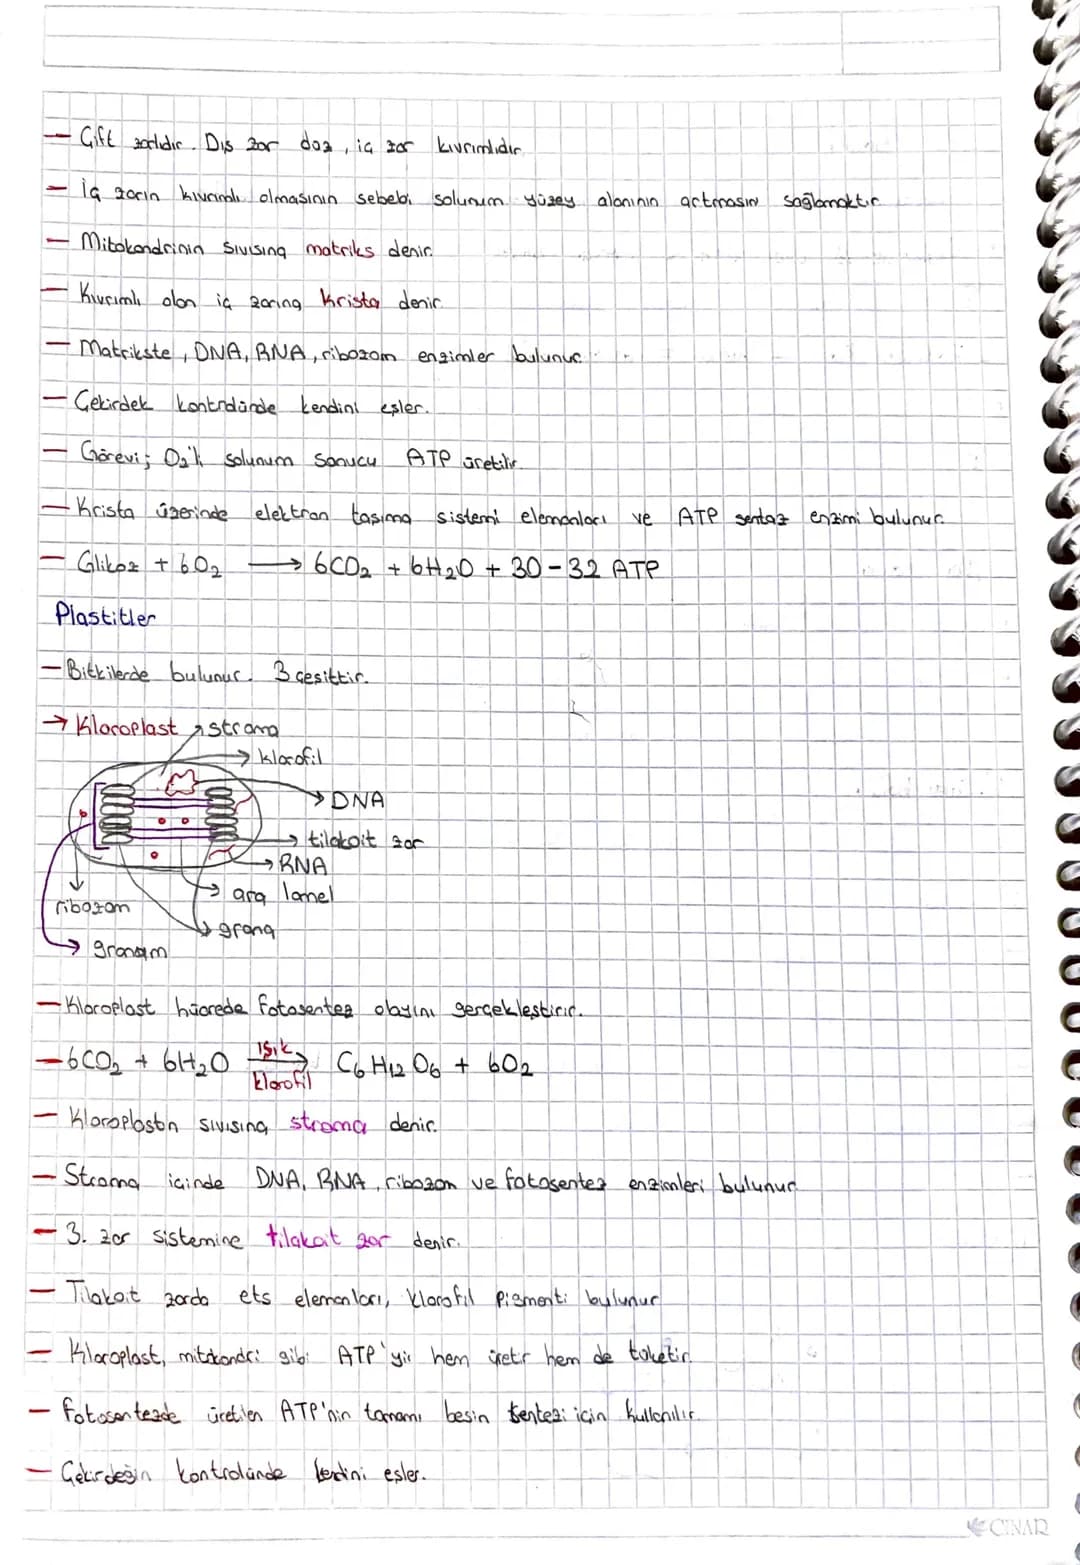 - Çift zarlıdır. Dış zar düz, iç zar kıvrımlıdır.
- İç zarın kıvrımlı olmasının sebebi solunum yüzey alanının artmasını sağlamaktır.
- Mitokondrinin sıvısına matriks denir.
- Kıvrımlı olan iç zarına krista denir.
- Matrikste, DNA, RNA, ribozom enzimler bulunur.
- Çekirdek kontrolünde kendini eşler.
- Görevi; O₂'li solunum sonucu ATP üretilir.
- Krista üzerinde elektron taşıma sistemi elemanları ve ATP sentaz enzimi bulunur.
- Glikoz + 6O₂ → 6CO₂ + 6H₂O + 30-32 ATP
Plastitler
- Bitkilerde bulunur. 3 çeşittir.
→ Kloroplast
stroma
klorofil
DNA
tilakoit zar
RNA
ara lamel
ribozom
grana
granum
- Kloroplast hücrede fotosentez olayını gerçekleştirir.
- 6CO₂ + 6H₂O ışık → klorofil C₆H₁₂O₆ + 6O₂
- Kloroplastın sıvısına stroma denir.
- Stroma içinde DNA, RNA, ribozom ve fotosentez enzimleri bulunur.
- 3. zar sistemine tilakoit zar denir.
- Tilakoit zarda ets elemanları, klorofil pigmenti bulunur
- Kloroplast, mitokondri gibi ATP'yi hem üretir hem de tüketir.
- Fotosentezde üretilen ATP'nin tamamı besin sentezi için kullanılır.
- Çekirdeğin kontrolünde kendini eşler.
ÇINAR